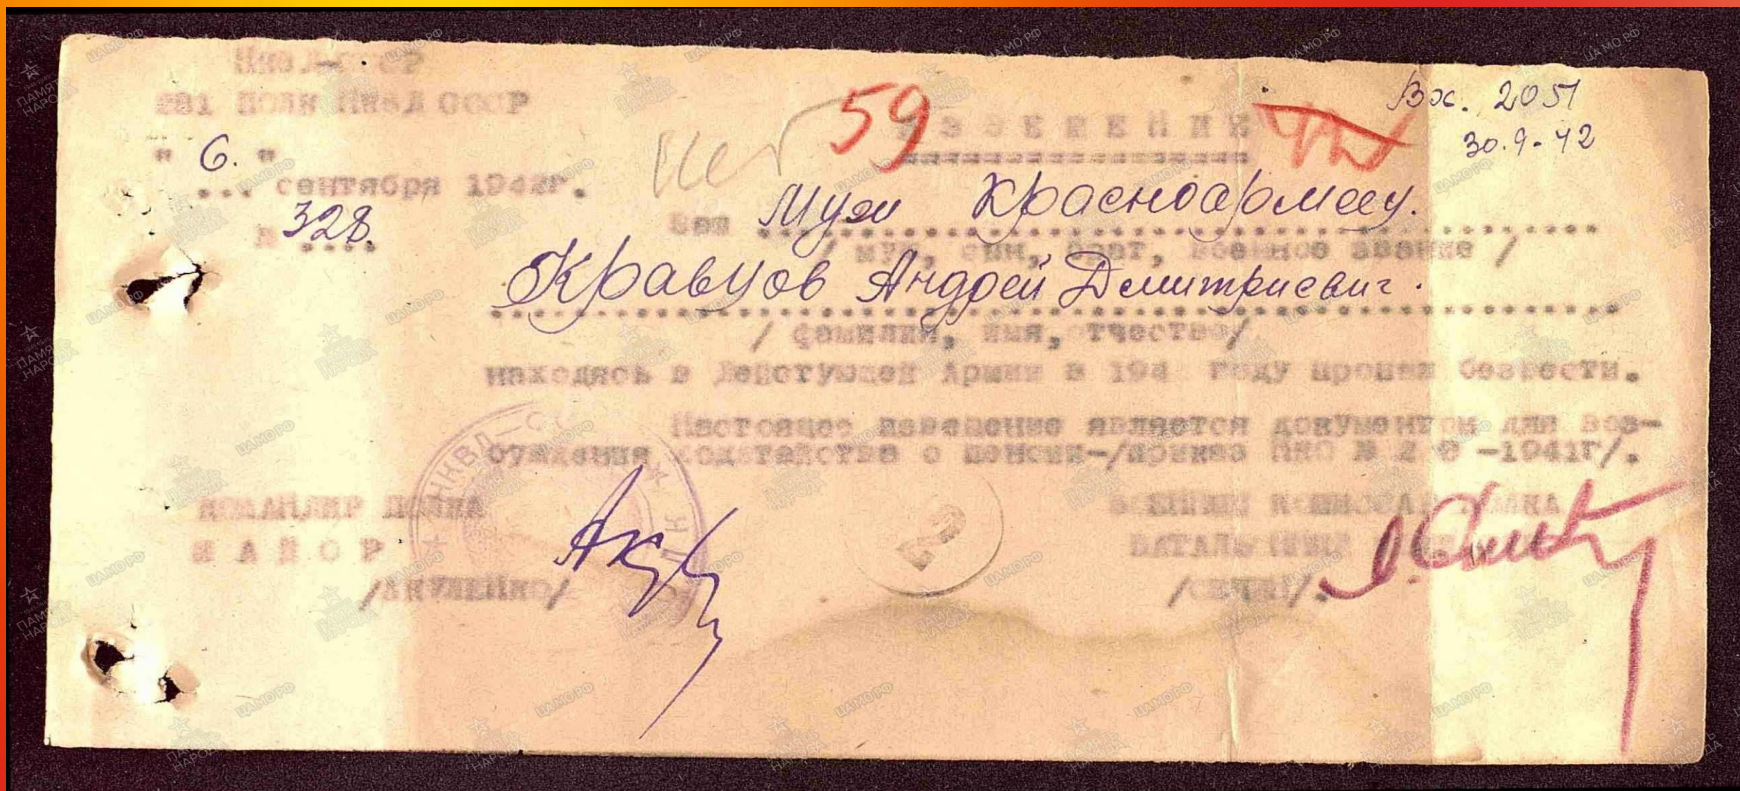 НКВД-СССР
281 ПОЛК НКВД СССР
" 6. "
... сентября 1942г.
№ 328.
Нет
59
ИЗВЕЩЕНИЕ
Вх. 2051
30.9.42
Ваш Муж Красноармеец.
/ муж, сын, брат, военное звание /
Кравцов Андрей Дмитриевич.
/ фамилия, имя, отчество/
находясь в Действующей Армии в 194 году пропал безвести.
Настоящее извещение является документом для воз-
буждения ходатайства о пенсии-/приказ НКО № -1941г/.
КОМАНДИР ПОЛКА
МАЙОР
/АКУЛЕНКО/
ВОЕННЫЙ КОМИССАР ПОЛКА
БАТАЛЬОННЫЙ
НКВД-СС
2
ЦАМО.РФ
ПАМЯТЬ НАРОДА